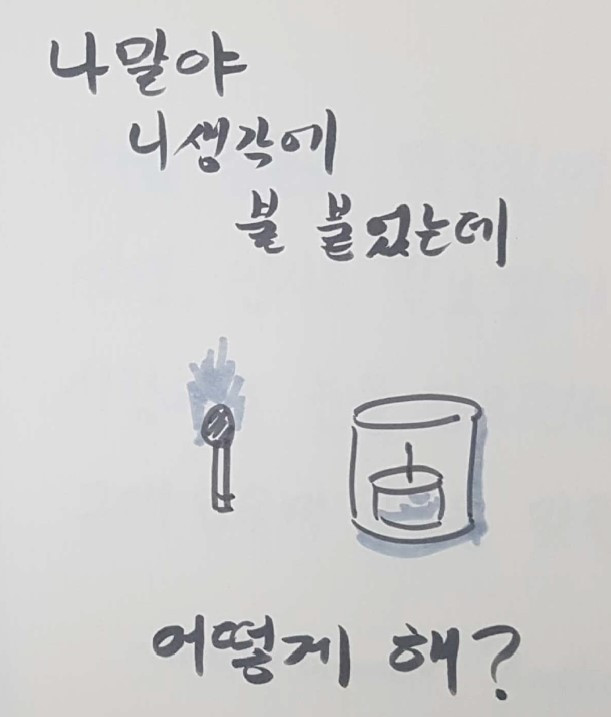 나말야
니생각에
불 붙었는데
어떻게 해?